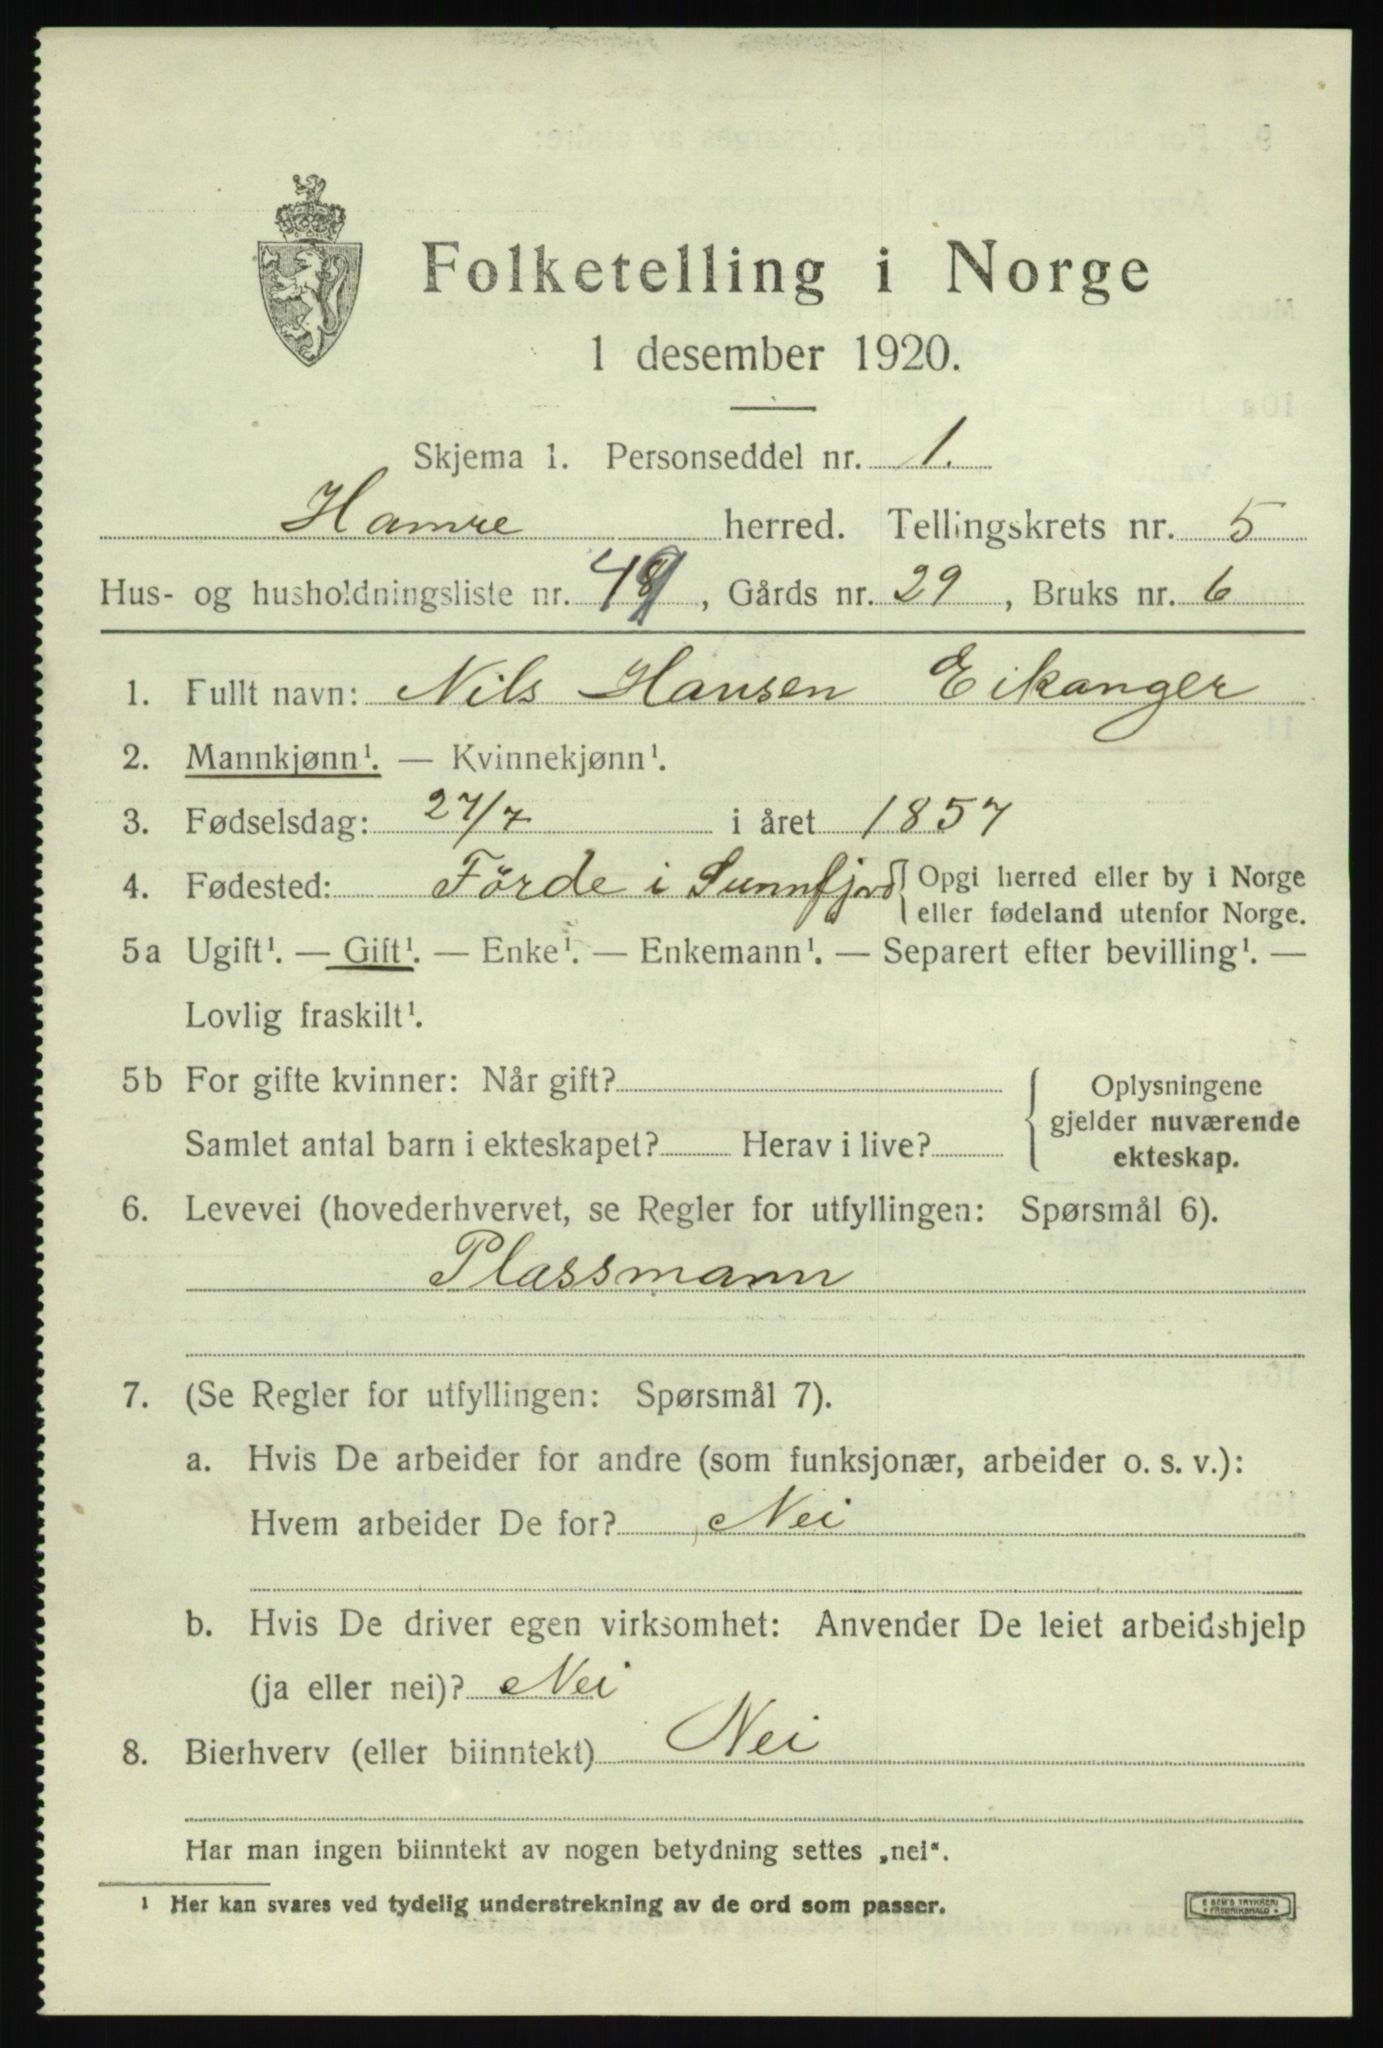 Folketelling i Norge
1 desember 1920.
Skjema 1. Personseddel nr. 1.
Hamre herred. Tellingskrets nr. 5
Hus- og husholdningsliste nr. 48, Gårds nr. 29, Bruks nr. 6
1. Fullt navn: Nils Hansen Eikanger
2. Mannkjønn¹. — Kvinnekjønn¹.
3. Fødselsdag: 27/7 i året 1857
4. Fødested: Förde i Sunnfjord { Opgi herred eller by i Norge
eller fødeland utenfor Norge.
5a Ugift¹. — Gift¹. — Enke¹. — Enkemann¹. — Separert efter bevilling¹. —
Lovlig fraskilt¹.
5b For gifte kvinner: Når gift?
Samlet antal barn i ekteskapet? Herav i live?
{ Oplysningene
gjelder nuværende
ekteskap.
6. Levevei (hovederhvervet, se Regler for utfyllingen: Spørsmål 6).
Plassmann
7. (Se Regler for utfyllingen: Spørsmål 7).
a. Hvis De arbeider for andre (som funksjonær, arbeider o. s. v.):
Hvem arbeider De for? Nei
b. Hvis De driver egen virksomhet: Anvender De leiet arbeidshjelp
(ja eller nei)? Nei
8. Bierhverv (eller biinntekt) Nei
Har man ingen biinntekt av nogen betydning settes „nei“.
¹ Her kan svares ved tydelig understrekning av de ord som passer.
E SEM'S TRYKKERI
FREDRIKSHALD